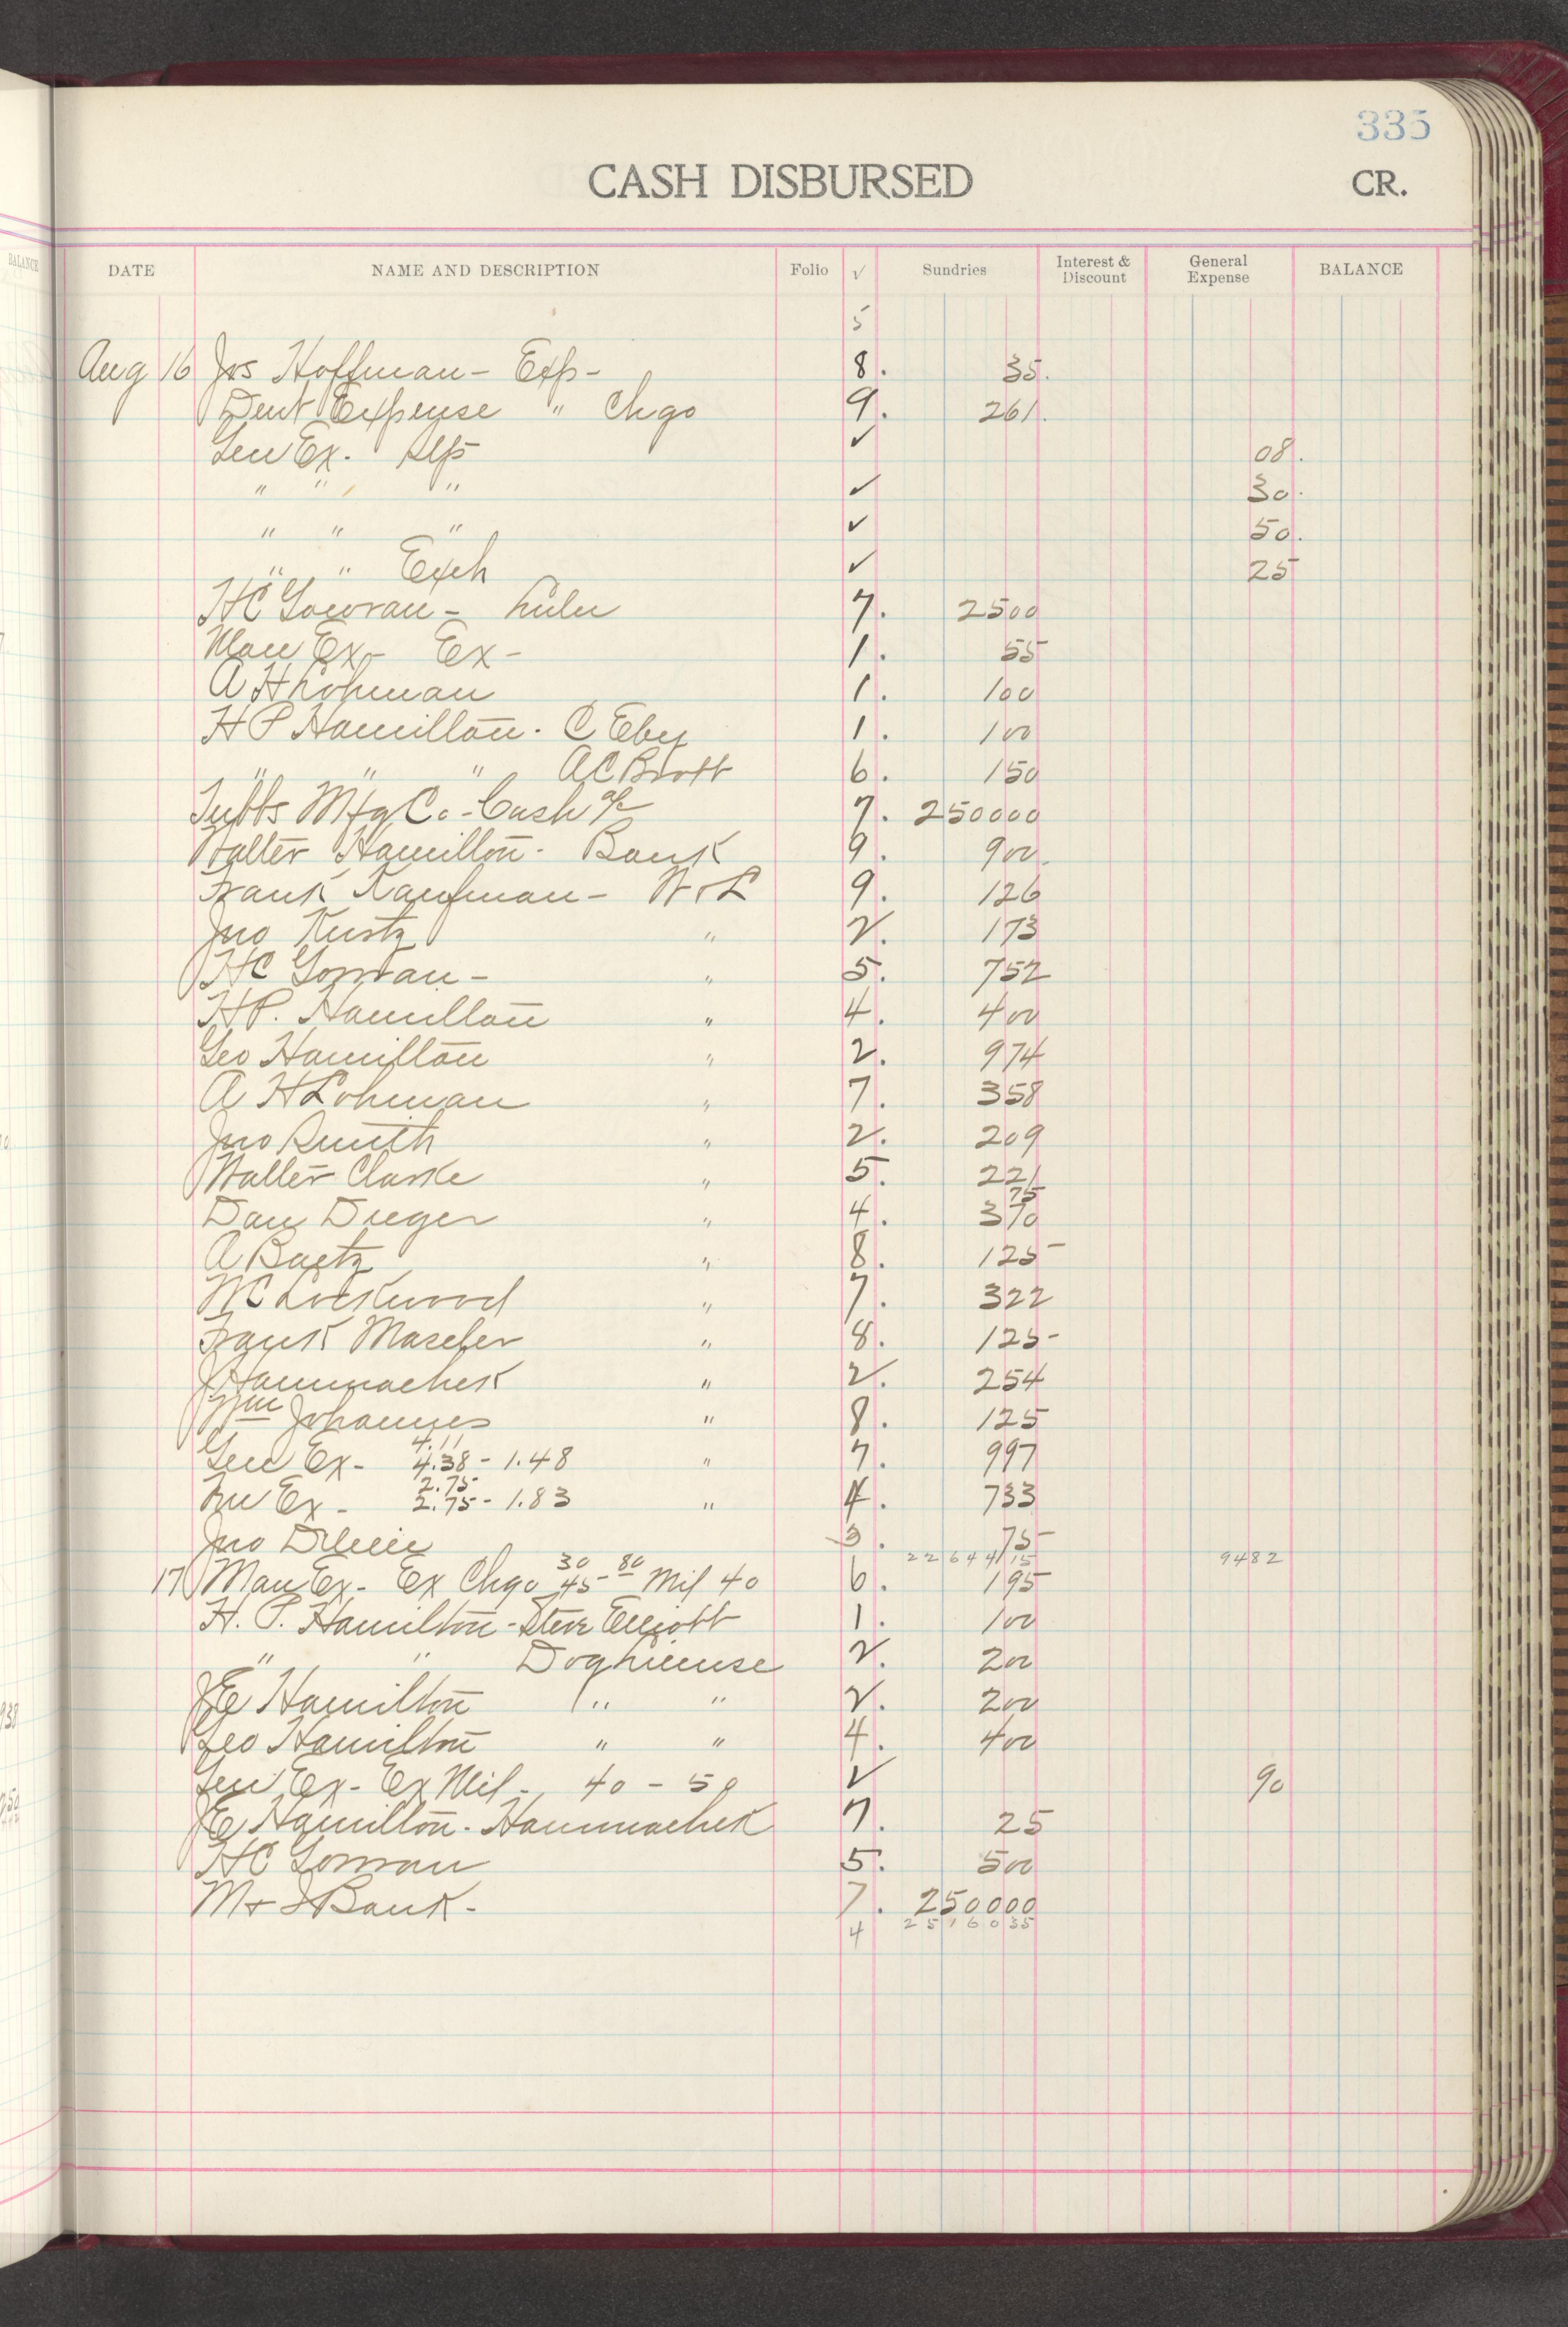 335
CASH DISBURSED CR.
BALANCE
DATE NAME AND DESCRIPTION Folio √ Sundries Interest & Discount General Expense BALANCE
5
Aug 16 Jos Hoffman - Exp - 8. 35.
Dent Expense " Chgo 9. 261.
Gen Ex. Slps ✓ 08.
" " " ✓ 30.
" " " ✓ 50.
" " Exch ✓ 25
HC Gowran - 7. 2500
Man Ex - Ex - 1. 55
A H Lohman 1. 100
H P Hamilton. C Eby 1. 100
" " " A C Brott 6. 150
Tubbs Mfg Co - Cash a/c 7. 250000
Walter Hamilton - Bank 9. 900.
Frank Kaufman - W & L 9. 126
Jno Kustz " 2. 173
HC Gowran - " 5. 752
H P. Hamilton " 4. 400
Geo Hamilton " 2. 974
A H Lohman " 7. 358
Jno Smith " 2. 209
Walter Clarke " 5. 221
75
Dan Dreger " 4. 370
A Baetz " 8. 125-
WC Lockwood " 7. 322
Frank Mascher " 8. 125-
J Hammachek " 2. 254
Wm Johannes " 8. 125
4.11
Gen Ex - 4.38 - 1.48 " 7. 997
2.75-
Ex - 2.75 - 1.83 " 4. 733
Jno 3. 75-
2264415 9482
30 80
17 Man Ex - Ex Chgo 45- Mil 40 6. 195
H. P. Hamilton - Steve Elliott 1. 100
" " Dog License 2. 200
J E Hamilton " " 2. 200
Geo Hamilton " " 4. 400
Gen Ex - Ex Mil - 40 - 50 ✓ 90
J E Hamilton - Hammachek 7. 25
HC Gowran 5. 500
M & J Bank - 7. 250000
2516035
4